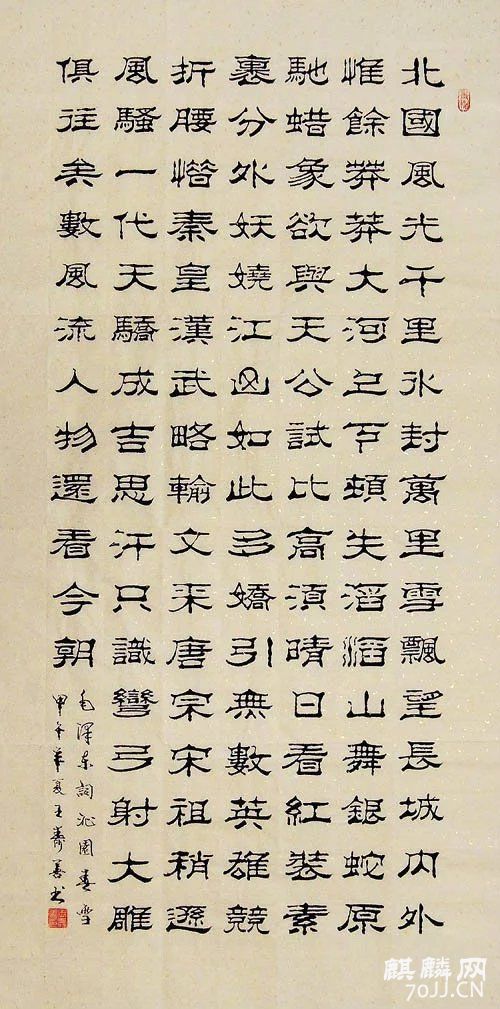 北國風光千里冰封萬里雪飄望長城內外
惟餘莽莽大河上下頓失滔滔山舞銀蛇原
馳蜡象欲與天公試比高須晴日看紅裝素
裹分外妖嬈江山如此多嬌引無數英雄競
折腰惜秦皇漢武略輸文采唐宗宋祖稍遜
風騷一代天驕成吉思汗只識彎弓射大雕
俱往矣數風流人物還看今朝
毛澤東詞沁園春雪
甲午年夏王壽善书
麒麟网
70JJ.CN